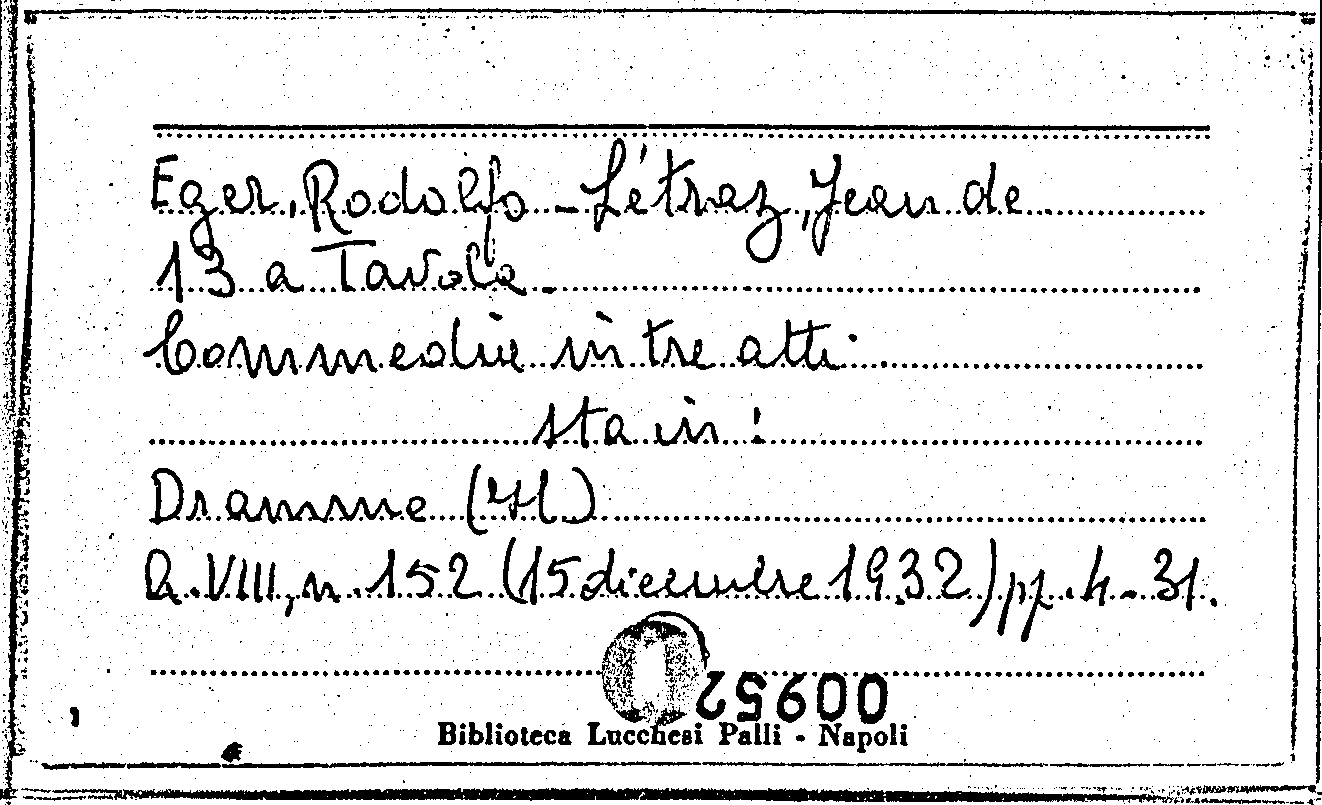 Eger, Rodolfo - Létraz, Jean de
13 a Tavola -
Commedia in tre atti.
sta in:
Dramme (Il)
A. VIII, n. 152 (15 dicembre 1932) pp. 4-31.
00952
Biblioteca Lucchesi Palli - Napoli